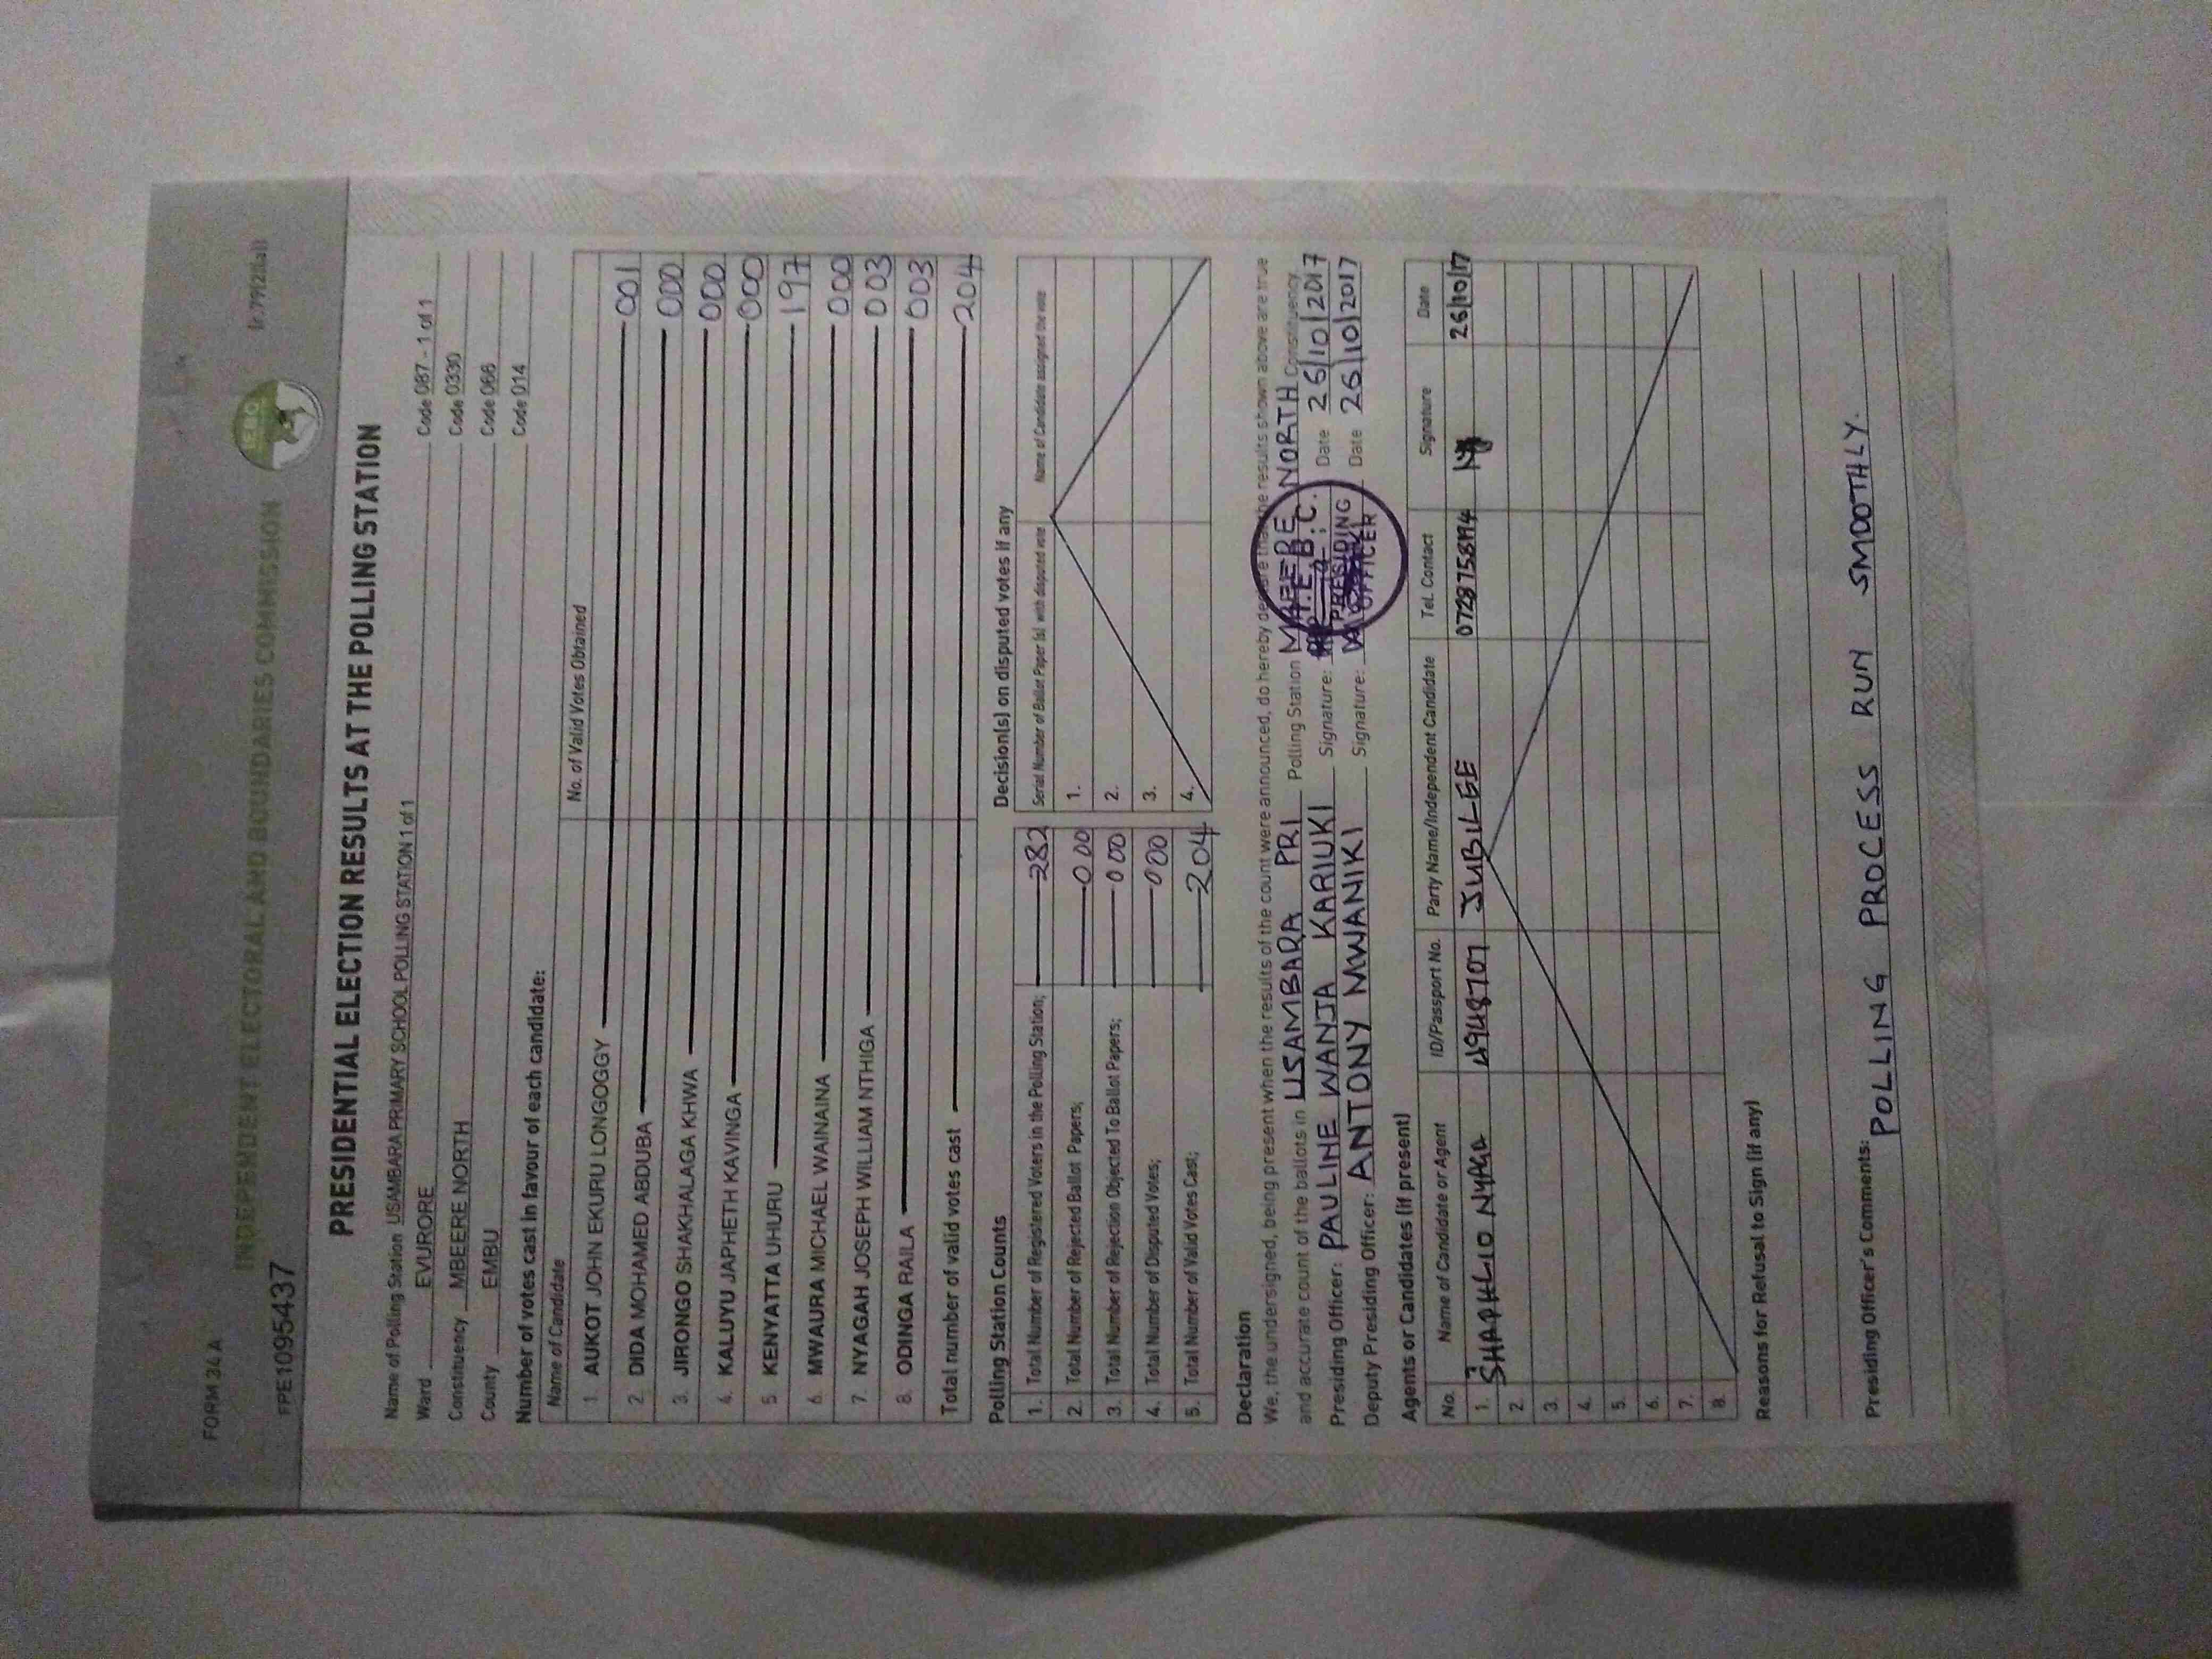 FORM 34 A
INDEPENDENT ELECTORAL AND BOUNDARIES COMMISSION
FPE1095437
I.E.B.C
PRESIDENTIAL ELECTION RESULTS AT THE POLLING STATION
Name of Polling Station USAMBARA PRIMARY SCHOOL POLLING STATION 1 of 1 Code 087 - 1 of 1
Ward EVURORE Code 0330
Constituency MBEERE NORTH Code 066
County EMBU Code 014
Number of votes cast in favour of each candidate:
Name of Candidate No. of Valid Votes Obtained
1 AUKOT JOHN EKURU LONGOGGY 001
2. DIDA MOHAMED ABDUBA 000
3. JIRONGO SHAKHALAGA KHWA 000
4. KALUYU JAPHETH KAVINGA 000
5 KENYATTA UHURU 197
6 MWAURA MICHAEL WAINAINA 000
7. NYAGAH JOSEPH WILLIAM NTHIGA 003
8. ODINGA RAILA 003
Total number of valid votes cast 204
Polling Station Counts
1. Total Number of Registered Voters in the Polling Station; 282
2. Total Number of Rejected Ballot Papers; 000
3. Total Number of Rejection Objected To Ballot Papers; 000
4. Total Number of Disputed Votes; 000
5. Total Number of Valid Votes Cast; 204
Decision(s) on disputed votes if any
Serial Number of Ballot Paper (s) with disputed vote Name of Candidate assigned the vote
1.
2.
3.
4.
Declaration
We, the undersigned, being present when the results of the count were announced, do hereby declare that the results shown above are true
and accurate count of the ballots in USAMBARA PRI Polling Station MBEERE NORTH Constituency
Presiding Officer: PAULINE WANJA KARIUKI Signature: Date 26/10/2017
Deputy Presiding Officer: ANTONY MWANIKI Signature: Date 26/10/2017
I.E.B.C.
PRESIDING
OFFICER
Agents or Candidates (if present)
No. Name of Candidate or Agent ID/Passport No. Party Name/Independent Candidate Tel. Contact Signature Date
1. NYAGA 4948707 JUBILEE 0728758194 26/10/17
2.
3.
4.
5.
6.
7.
8.
Reasons for Refusal to Sign (if any)
Presiding Officer's Comments:
POLLING PROCESS RUN SMOOTHLY.